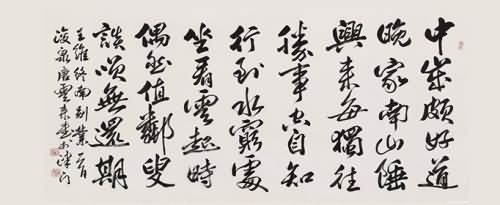 中歲頗好道
晚家南山陲
興來每獨往
勝事空自知
行到水窮處
坐看雲起時
偶然值鄰叟
談咲無還期
王維終南別業一首
唐雲來書於津門